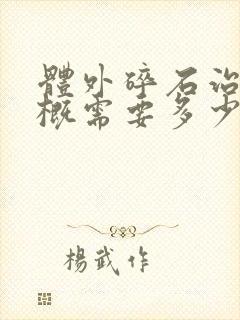 體外碎石治
概需要多少
楊武作